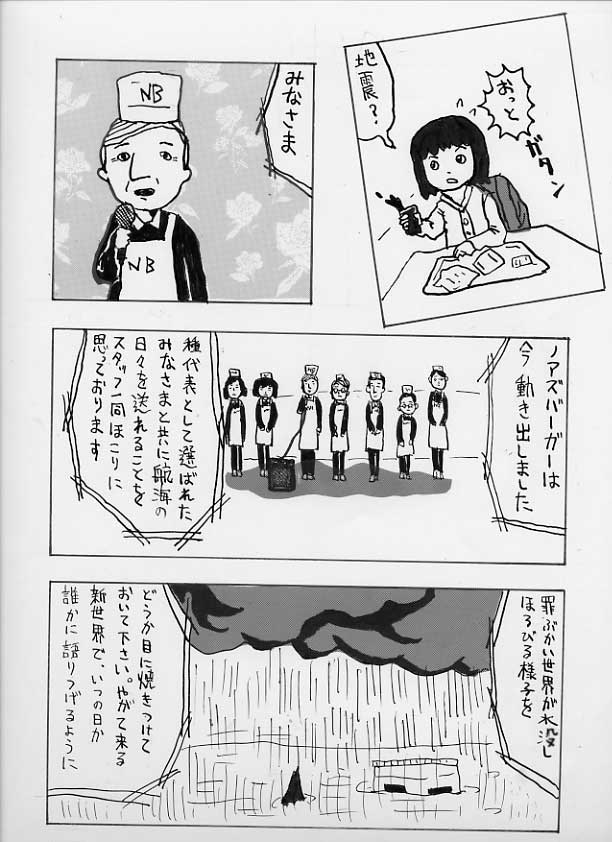 おっと
ガタン
地震?
みなさま
NB
NB
ノアズバーガーは
今動き出しました
種代表として選ばれた
みなさまと共に航海の
日々を送れることを
スタッフ一同ほこりに
思っております
罪ぶかい世界が水没し
ほろびる様子を
どうか目に焼きつけて
おいて下さい。やがて来る
新世界で、いつの日か
誰かに語りつげるように